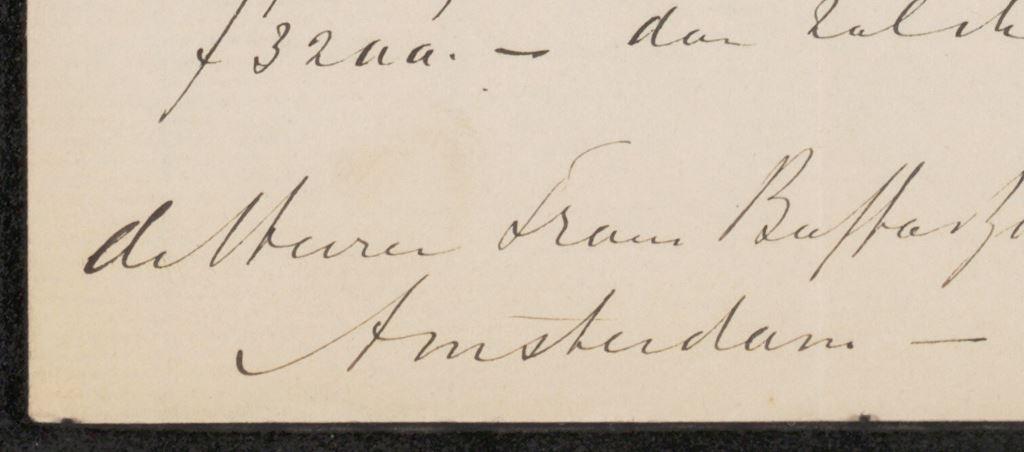 f 3200. — dan zal ik
de Heeren Frans Buffa & Zo
Amsterdam —